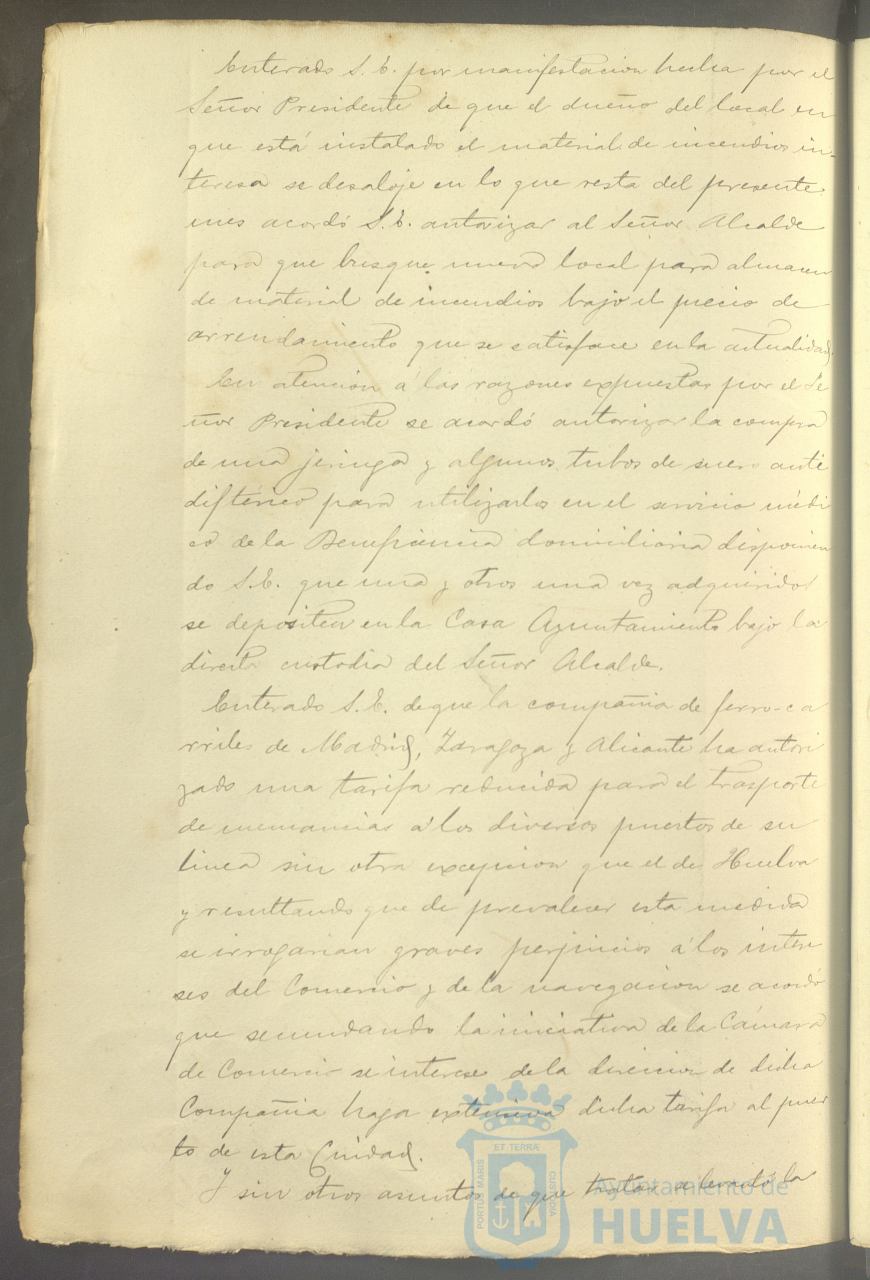 Enterado S. E. por manifestacion hecha por el
Señor Presidente de que el dueño del local en
que está instalado el material de incendios in-
teresa se desaloje en lo que resta del presente
mes acordó S. E. autorizar al Señor Alcalde
para que busque nuevo local para almacen
de material de incendios bajo el precio de
arrendamiento que se satisface en la actualidad.
En atención á las razones expuestas por el Se
ñor Presidente se acordó autorizar la compra
de una jeringa y algunos tubos de suero anti
diftérico para utilizarlos en el servicio médi
co de la Beneficencia domiciliaria disponien
do S. E. que una y otros una vez adquiridos
se depositen en la Casa Ayuntamiento bajo la
directa custodia del Señor Alcalde.
Enterado S. E. de que la compañia de ferro-ca
rriles de Madrid, Zaragoza y Alicante ha autori
zado una tarifa reducida para el trasporte
de mercancias á los diversos puertos de su
linea sin otra excepcion que el de Huelva
y resultando que de prevalecer esta medida
se irrogarian graves perjuicios á los intere
ses del Comercio y de la navegacion se acordó
que secundando la iniciativa de la Cámara
de Comercio se interese de la direccion de dicha
Compañia haga extensiva dicha tarifa al puer
to de esta Ciudad.
Y sin otros asuntos de que tratar se levantó la
ET TERRÆ
PORTUS MARIS
CUSTODIA
Ayuntamiento de
HUELVA